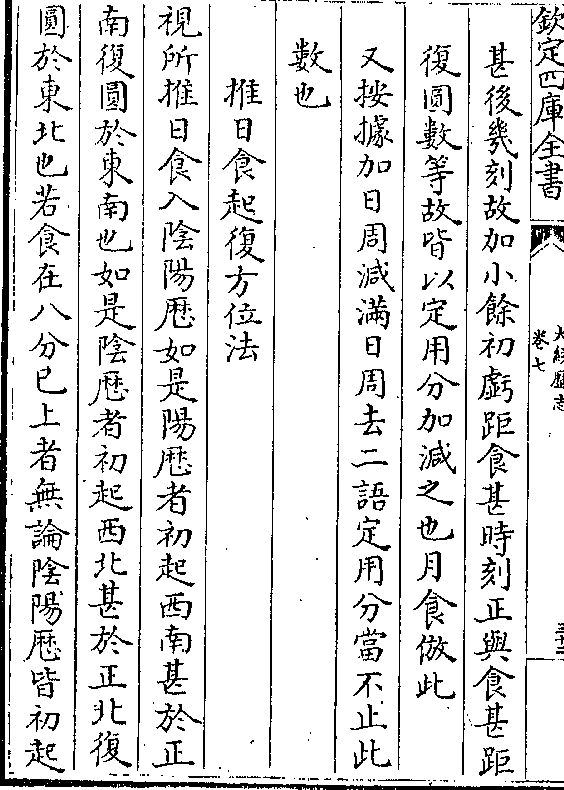 欽定四庫全書
大統歷志
卷七
甚後幾刻故加小餘初虧距食甚時刻正與食甚距
復圓數等故皆以定用分加減之也月食倣此
又按據加日周減滿日周去二語定用分當不止此
數也
推日食起復方位法
視所推日食入陰陽厯如是陽厯者初起西南甚於正
南復圓於東南也如是陰厯者初起西北甚於正北復
圓於東北也若食在八分已上者無論陰陽厯皆初起